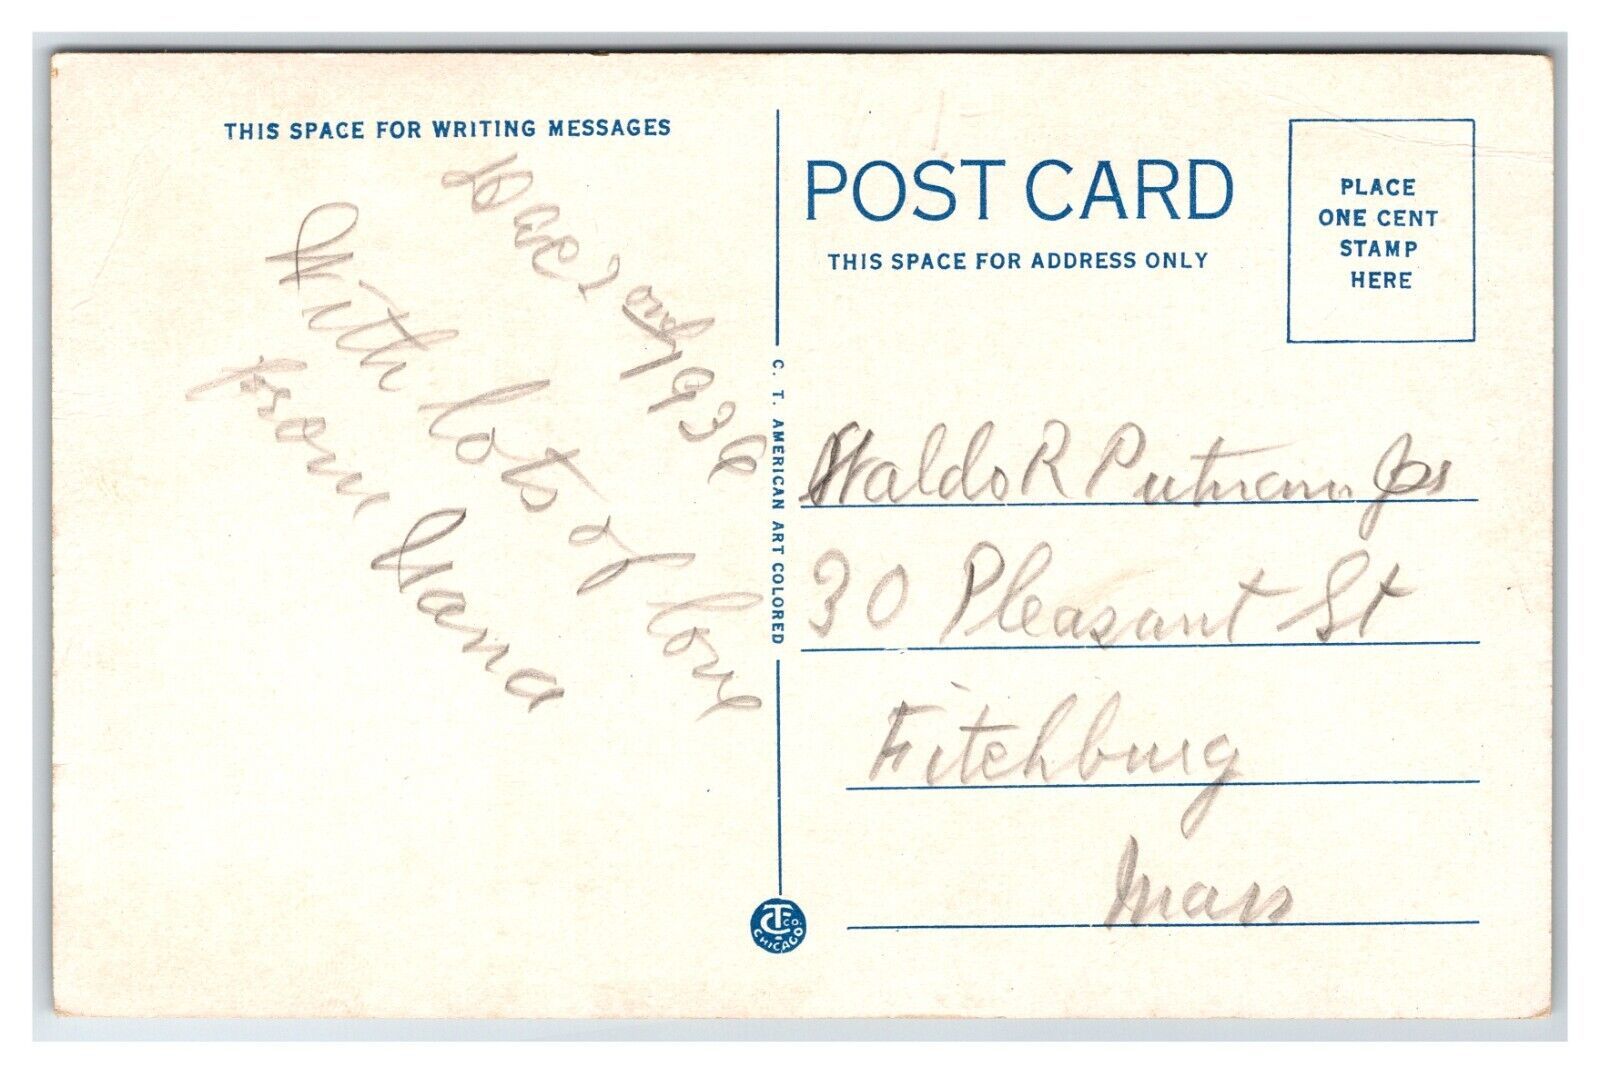 THIS SPACE FOR WRITING MESSAGES
Dec 2nd 1936
With lots of love
from Nana
C. T. AMERICAN ART COLORED
CT CO. CHICAGO
POST CARD
THIS SPACE FOR ADDRESS ONLY
PLACE
ONE CENT
STAMP
HERE
Waldo R Putnam Jr
30 Pleasant St
Fitchburg
Mass